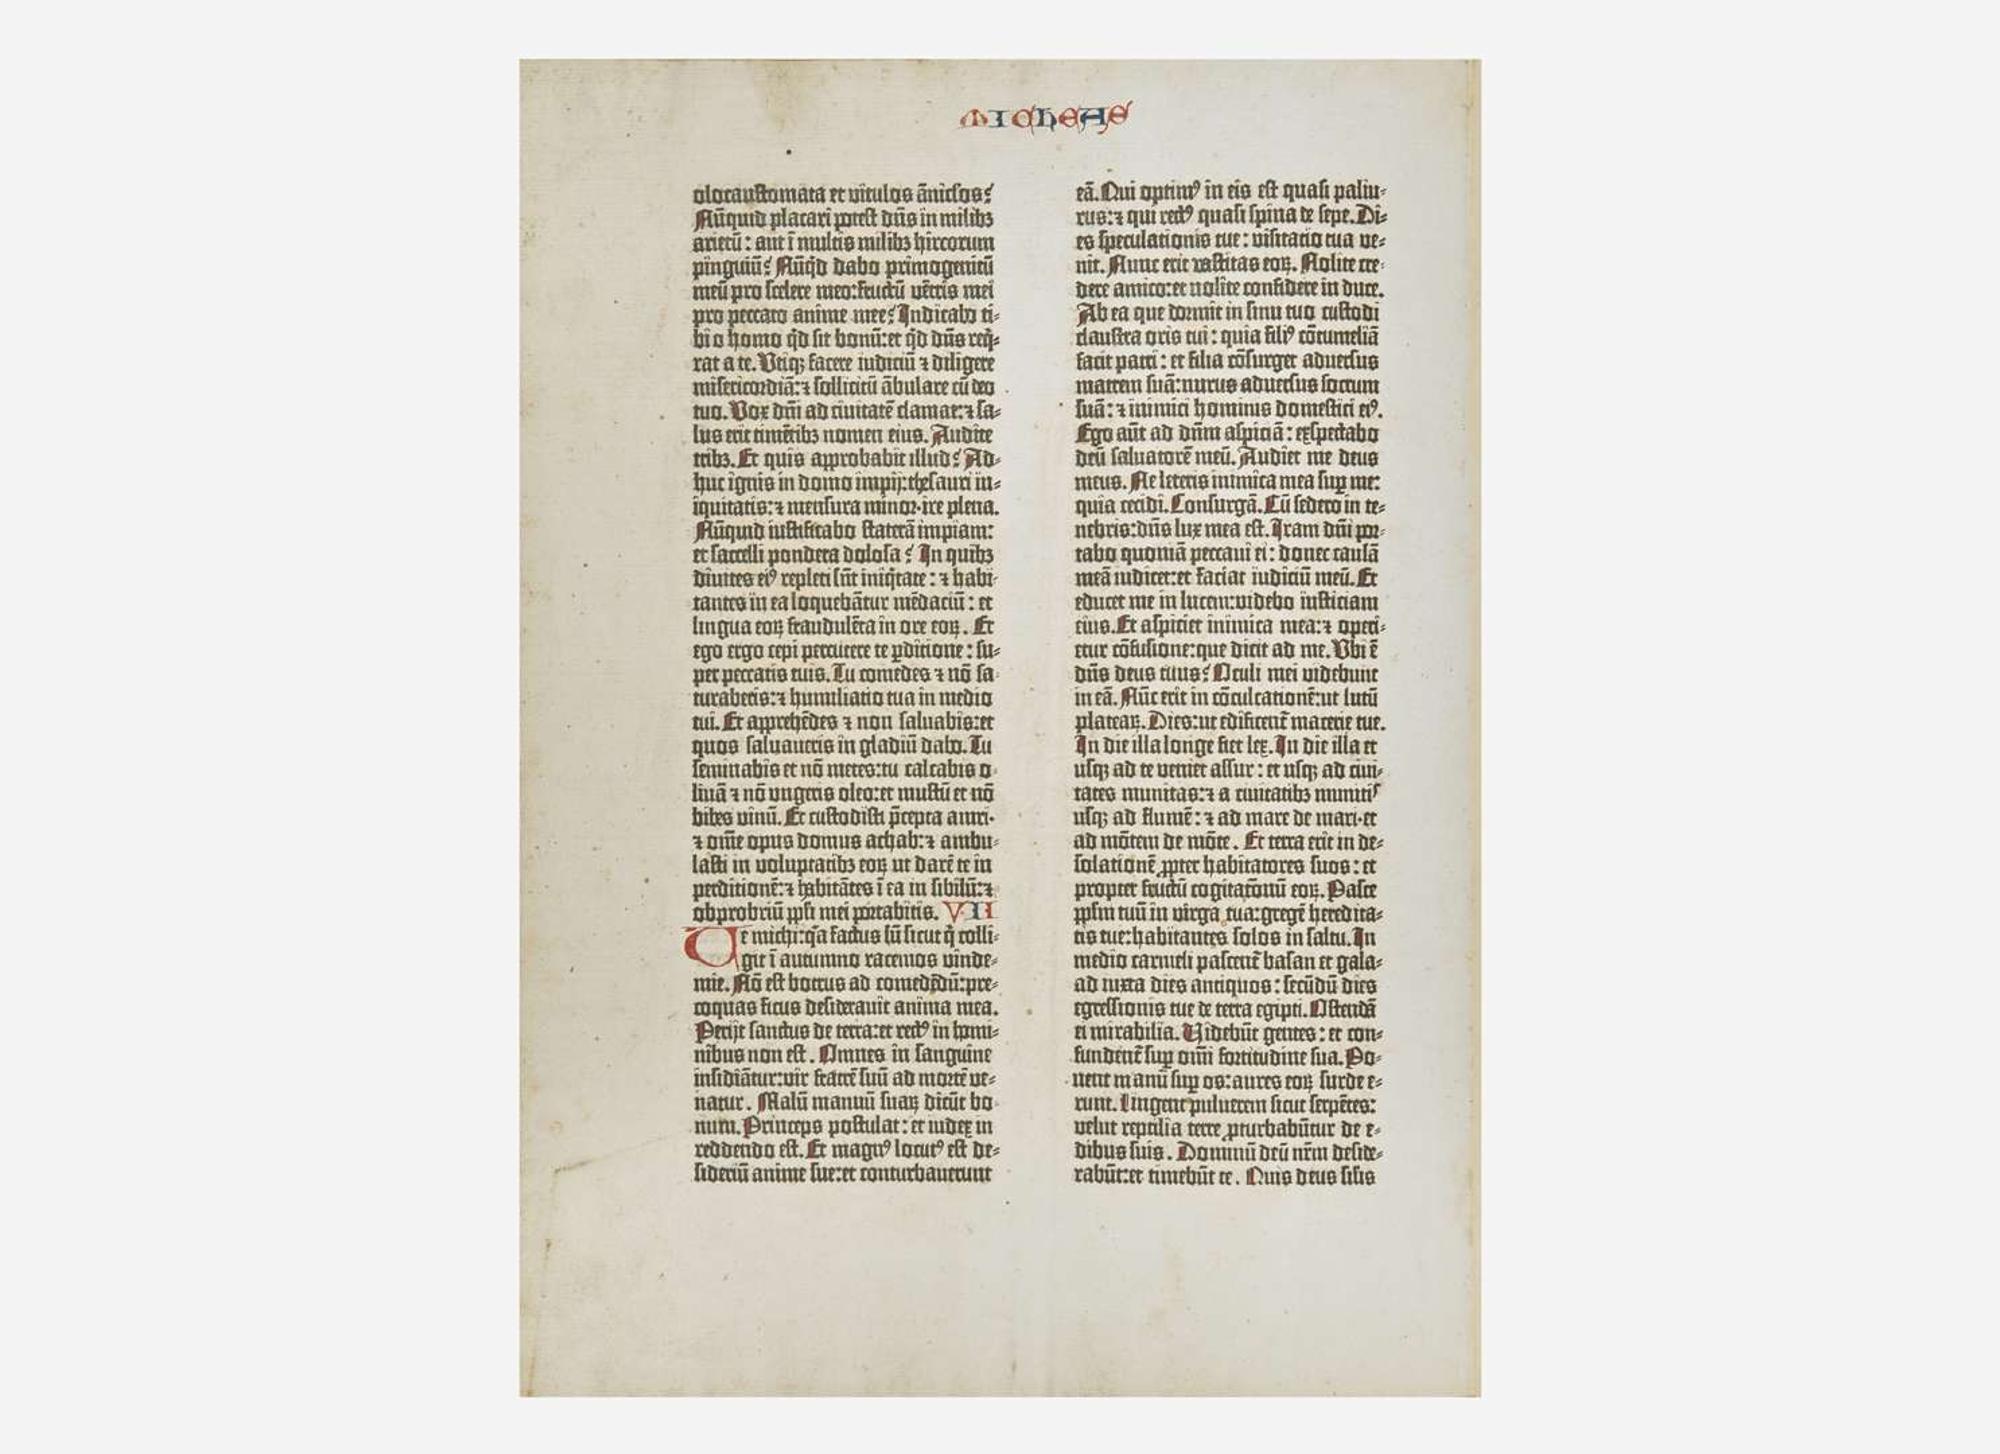 MICHEAS
olocaustomata et vitulos ānicłos?
Nūquid placari potest dn̄s in milibꝫ
arietū : aut ī multis milibꝫ hircorum
pinguiū? Nūqͥd dabo primogenitū
meū pro scelere meo:fructū vētris mei
pro peccato anime mee? Indicabo ti-
bi o homo qͥd sit bonū:et qͥd dn̄s reqͥ-
rat a te. Vtiqꝫ facere iudiciū ⁊ diligere
misericordiā:⁊ sollicitū ābulare cū deo
tuo. Vox dn̄i ad ciuitatē clamat:⁊ sa-
lus erit timētibꝫ nomen eius. Audite
tribꝫ. Et quis approbabit illud? Ad-
huc ignis in domo impij:thesauri in-
iquitatis:⁊ mensura minor·ire plena.
Nūquid iustificabo staterā impiam:
et saccelli pondera dolosa? In quibꝫ
diuites eiꝰ repleti sūt iniqͥtate : ⁊ habi-
tantes in ea loquebātur mēdaciū : et
lingua eoꝝ fraudulēta in ore eoꝝ. Et
ego ergo cepi percutere te ꝑditione : su-
per peccatis tuis. Tu comedes ⁊ nō sa-
turaberis:⁊ humiliatio tua in medio
tui. Et apprehēdes ⁊ non saluabis:et
quos saluaueris in gladiū dabo. Tu
seminabis et nō metes:tu calcabis o-
liuā ⁊ nō ungeris oleo:et mustū et nō
bibes vinū. Et custodisti p̄cepta amri·
⁊ om̄e opus domus achab:⁊ ambu-
lasti in voluptatibꝫ eoꝝ ut darē te in
perditionē:⁊ habitātes ī ea in sibilū:⁊
obprobriū ppłi mei portabitis. VII
Ue michi:qͣa factus sū sicut qͥ colli-
git ī autumno racemos vinde-
mie. Nō est botrus ad comedēdū:pre-
coquas ficus desiderauit anima mea.
Perijt sanctus de terra:et rectꝰ in homi-
nibus non est. Omnes in sanguine
insidiātur:vir fratrē suū ad mortē ve-
natur. Malū manuū suaꝝ dicūt bo-
num. Princeps postulat : et iudex in
reddendo est. Et magnꝰ locutꝰ est de-
sideriū anime sue:et conturbauerunt
eā. Qui optimꝰ in eis est quasi paliu-
rus:⁊ qui rectꝰ quasi spina de sepe. Di-
es speculationis tue : visitatio tua ve-
nit. Nunc erit vastitas eoꝝ. Nolite cre-
dere amico:et nolite confidere in duce.
Ab ea que dormit in sinu tuo custodi
claustra oris tui : quia filiꝰ cōtumeliā
facit patri : et filia cōsurget aduersus
matrem suā:nurus aduersus socrum
suā : ⁊ inimici hominis domestici eiꝰ.
Ego aūt ad dn̄m aspiciā : exspectabo
deū saluatorē meū. Audiet me deus
meus. Ne leteris inimica mea suꝑ me:
quia cecidi. Consurgā. Cū sedero in te-
nebris:dn̄s lux mea est. Iram dn̄i por-
tabo quoniā peccaui ei : donec causā
meā iudicet:et faciat iudiciū meū. Et
educet me in lucem:videbo iusticiam
eius. Et aspiciet inimica mea:⁊ operi-
etur cōfusione:que dicit ad me. Vbi ē
dn̄s deus tuus? Oculi mei videbunt
in eā. Nūc erit in cōculcationē:ut lutū
plateaꝝ. Dies:ut edificent᷑ macerie tue.
In die illa longe fiet lex. In die illa et
usqꝫ ad te veniet assur : et usqꝫ ad ciui-
tates munitas:⁊ a ciuitatibꝫ munitis
usqꝫ ad flumē : ⁊ ad mare de mari·et
ad mōtem de mōte. Et terra erit in de-
solationē ꝓpter habitatores suos : et
propter fructū cogitatōnū eoꝝ. Pasce
ppłm tuū in virga tua:gregē heredita-
tis tue:habitantes solos in saltu. In
medio carmeli pascent᷑ basan et gala-
ad iuxta dies antiquos : secūdū dies
egressionis tue de terra egipti. Ostendā
ei mirabilia. Videbūt gentes : et con-
fundent᷑ suꝑ om̄i fortitudine sua. Po-
nent manū suꝑ os:aures eoꝝ surde e-
runt. Lingent puluerem sicut serpētes:
velut reptilia terre ꝓturbabūtur de e-
dibus suis. Dominū deū nr̄m deside-
rabūt:et timebūt te. Quis deus sił'is